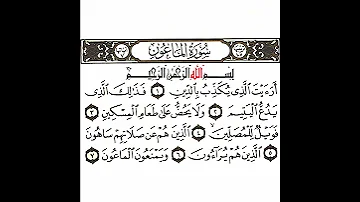 سورة الماعون
بسم الله الرحمن الرحيم
أرءيت الذي يكذب بالدين ١ فذلك الذي
يدع اليتيم ٢ ولا يحض على طعام المسكين ٣
فويل للمصلين ٤ الذين هم عن صلاتهم ساهون
٥ الذين هم يراءون ٦ ويمنعون الماعون ٧